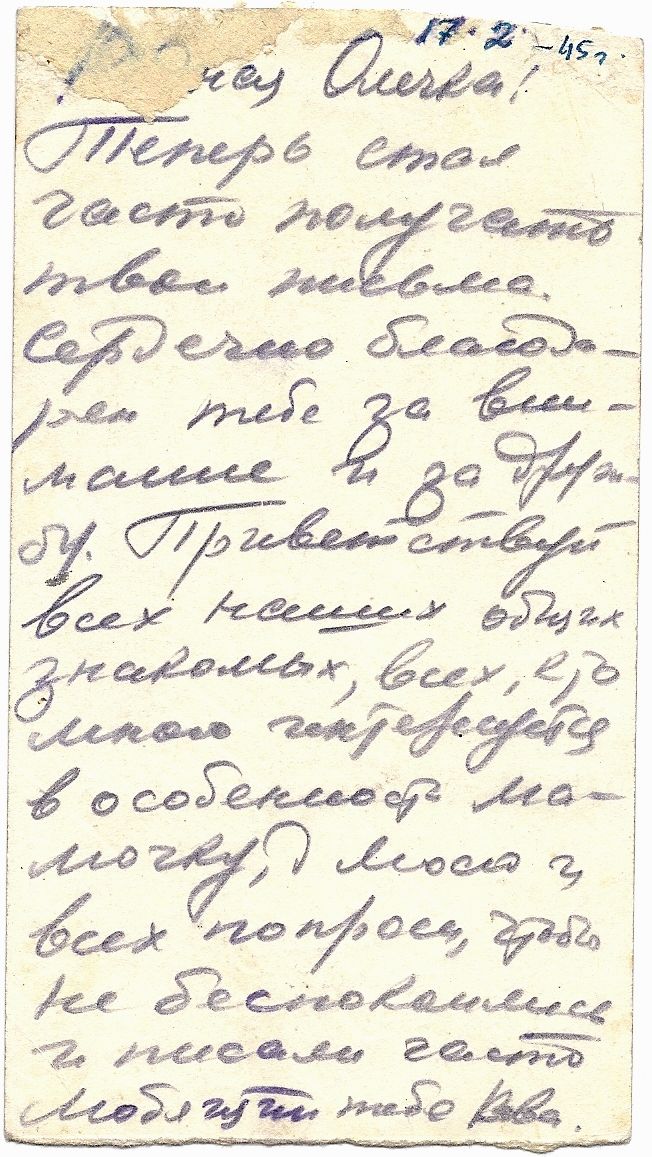 17.2-45г.
ная Олечка!
Теперь стал
часто получать
твои письма.
Сердечно благода-
рен тебе за вни-
мание и за друж-
бу. Приветствуй
всех наших общих
знакомых, всех, кто
мною интересуется
в особенности ма-
мочку, Люсю и
всех попроси, чтобы
не беспокоились
и писали часто
Любящий тебя Вова.